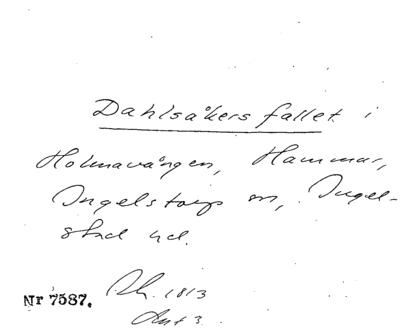 Dahlsåkers fallet i
Holmavången, Hammar,
Ingelstorp sn, Ingel-
stad hd.
Nr 7587. 1813
Ant 3